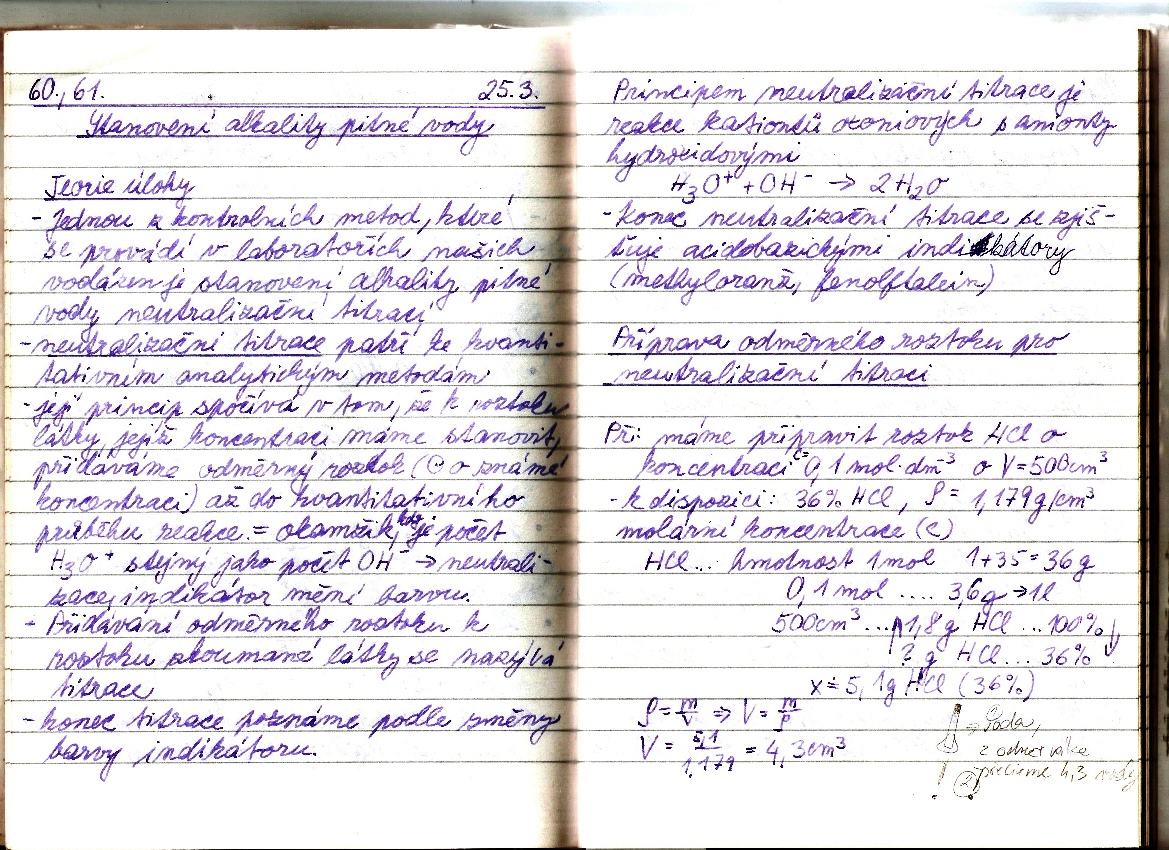 60., 61. 25.3.
Stanovení alkality pitné vody
Teorie úlohy
- Jednou z kontrolních metod, které
se provádí v laboratořích našich
vodáren je stanovení alkality pitné
vody neutralizační titrací
- neutralizační titrace patří ke kvanti-
tativním analytickým metodám
- její princip spočívá v tom, že k roztoku
látky, jejíž koncentraci máme stanovit,
přidáváme odměrný roztok (o známé
koncentraci) až do kvantitativního
průběhu reakce = okamžik, kdy je počet
H₃O⁺ stejný jako počet OH⁻ → neutrali-
zace, indikátor mění barvu.
- Přidávání odměrného roztoku k
roztoku zkoumané látky se nazývá
titrace
- konec titrace poznáme podle změny
barvy indikátoru.
Principem neutralizační titrace je
reakce kationtů oxoniových s anionty
hydroxidovými
H₃O⁺ + OH⁻ → 2H₂O
- Konec neutralizační titrace se zjiš-
ťuje acidobazickými indikátory
(methyloranž, fenolftalein)
Příprava odměrného roztoku pro
neutralizační titraci
Př: máme připravit roztok HCl o
koncentraci c= 0,1 mol·dm⁻³ o V=500cm³
- k dispozici: 36% HCl, ρ = 1,179g/cm³
molární koncentrace (c)
HCl... hmotnost 1mol 1+35=36g
0,1 mol .... 3,6g → 1l
500cm³ ... 1,8g HCl ... 100%
? g HCl ... 36%
x ≐ 5,1g HCl (36%)
ρ = m/V ⇒ V = m/ρ
V = 5,1/1,179 = 4,3cm³
→ Soda,
z odměr válce
! 2 přelijeme 4,3 vody